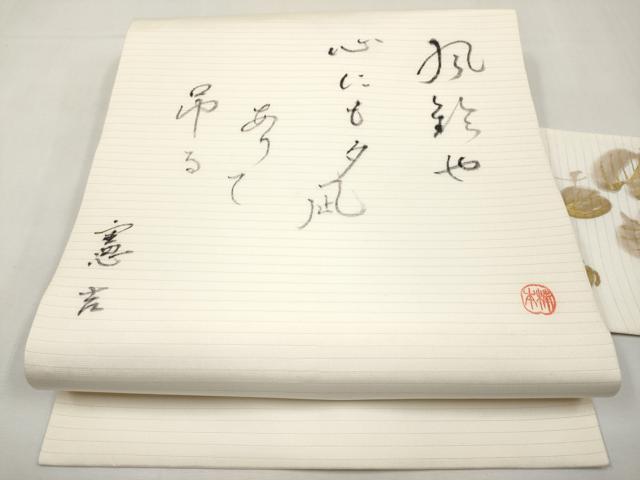 風鈴也
心にも夕凪
ありて
吊る
憲吉